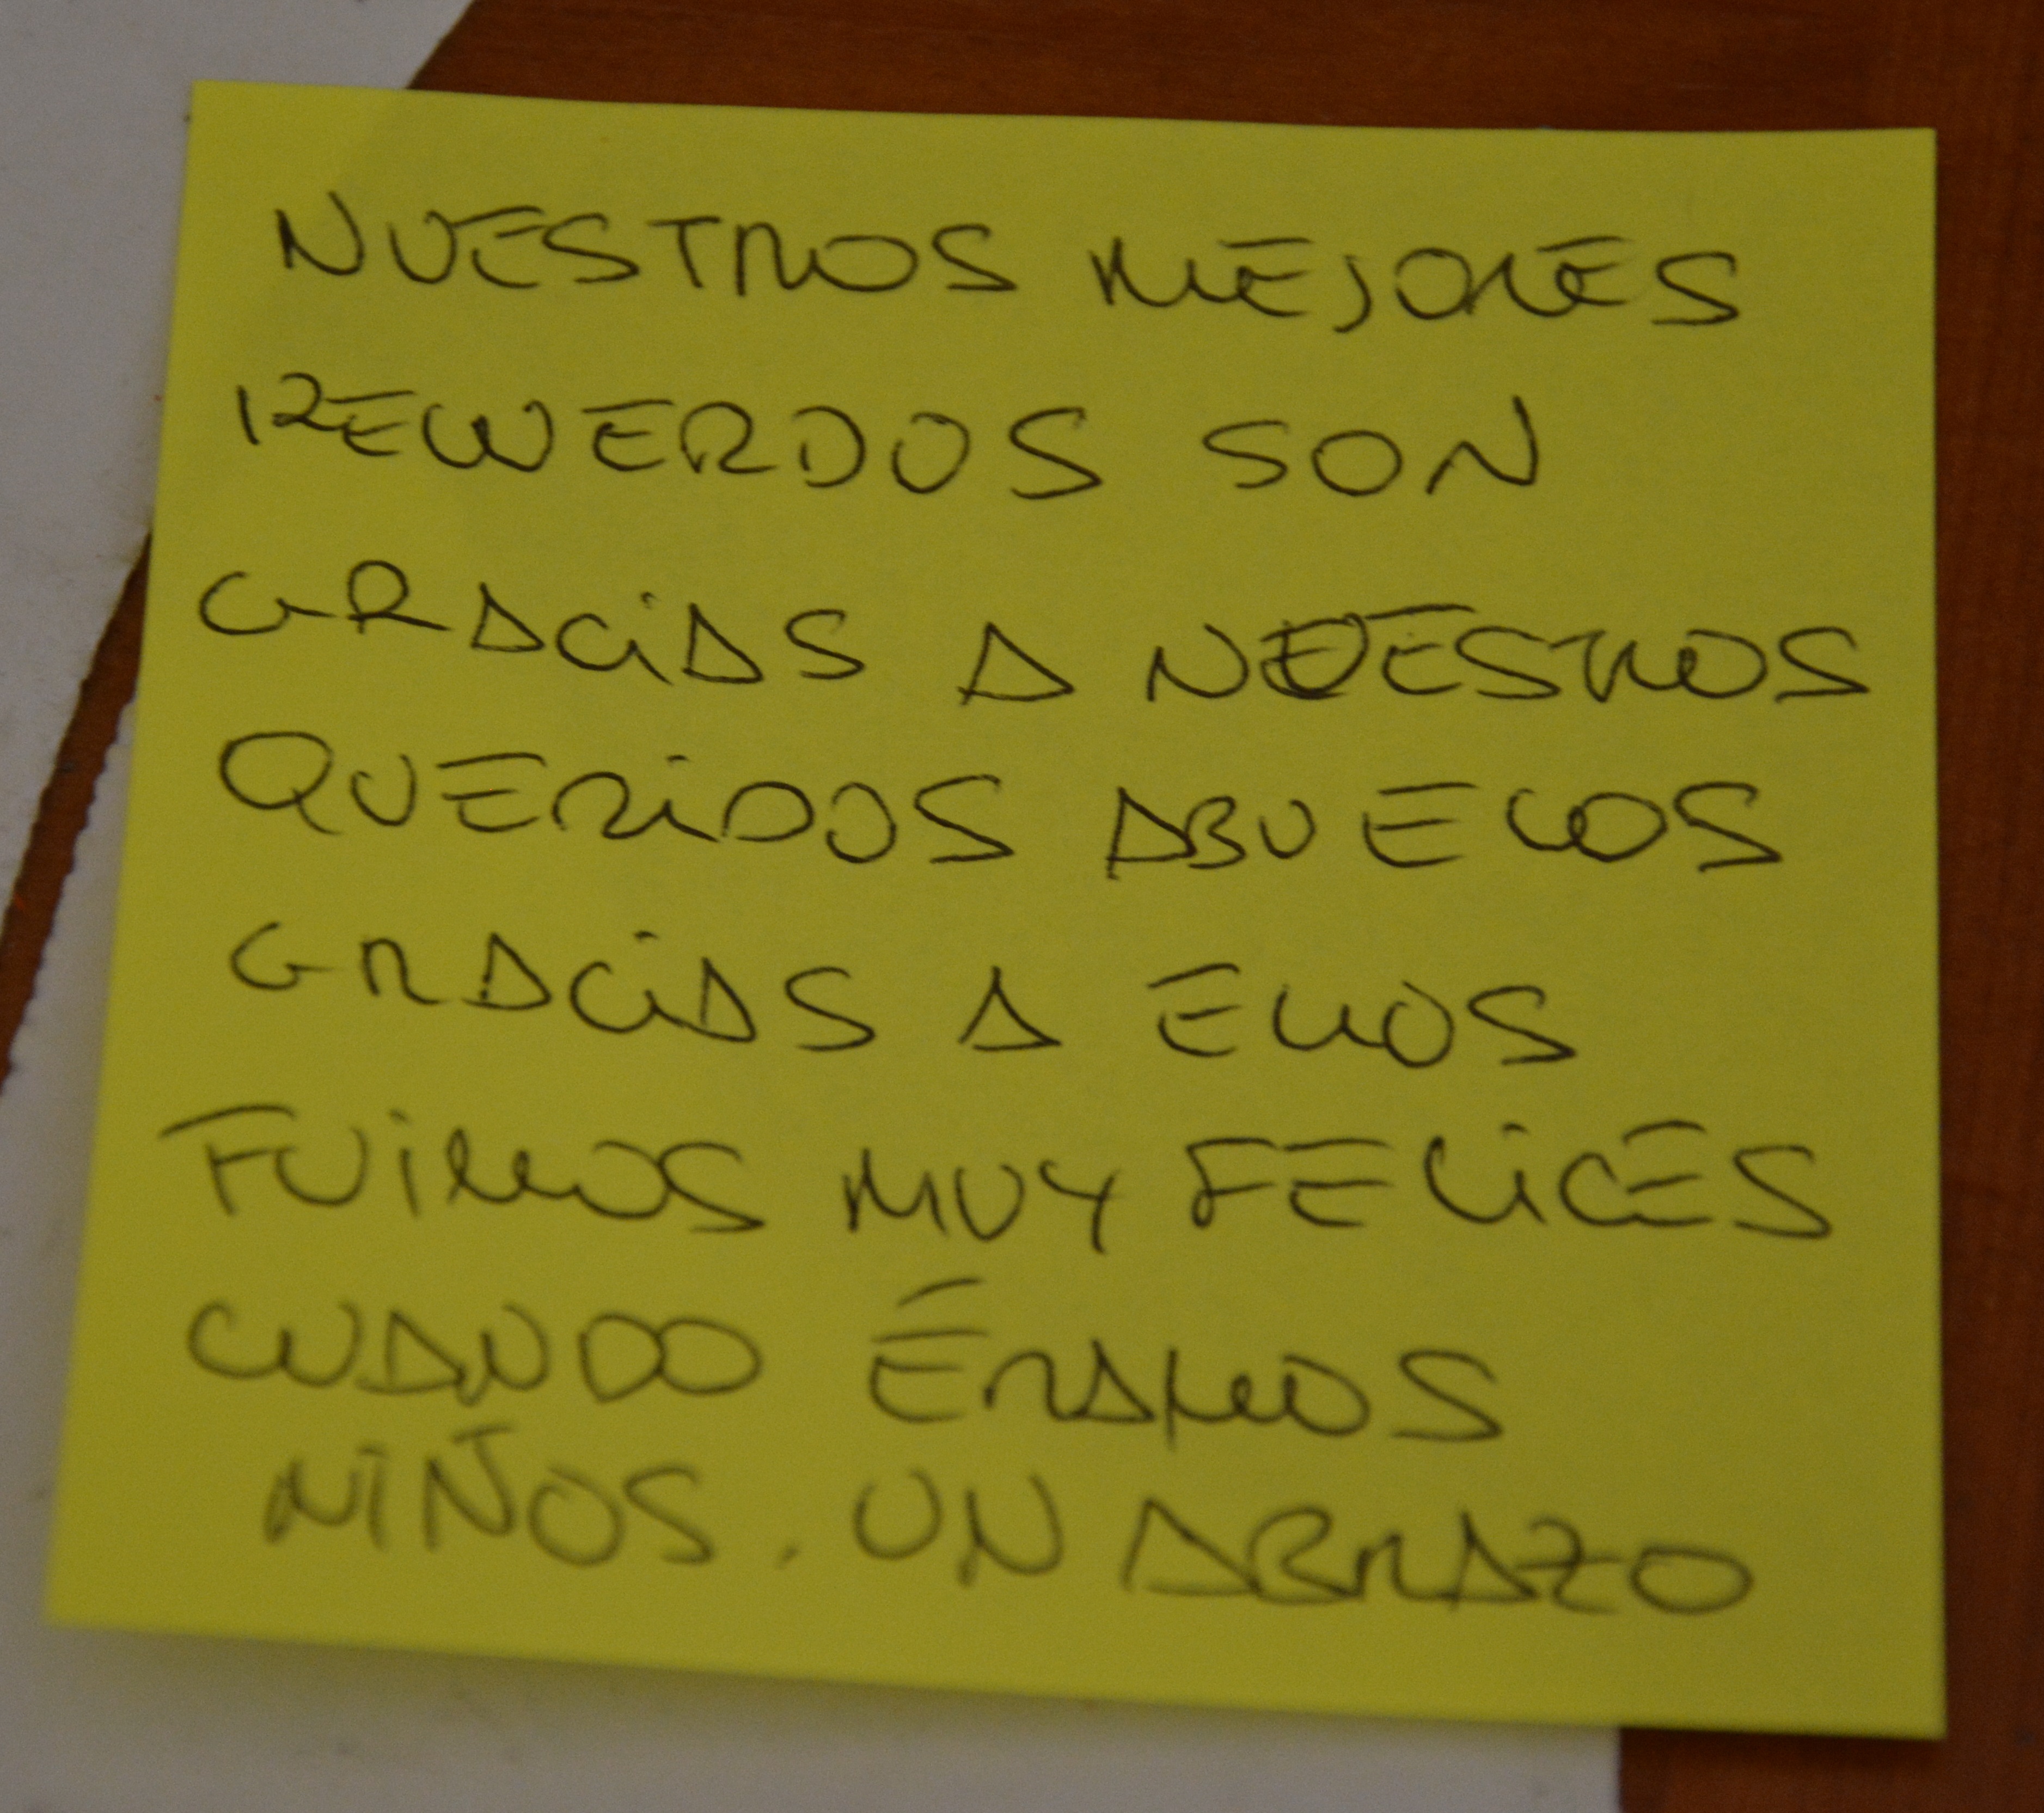 NUESTROS MEJORES
RECUERDOS SON
GRACIAS A NUESTROS
QUERIDOS ABUELOS
GRACIAS A ELLOS
FUIMOS MUY FELICES
CUANDO ÉRAMOS
NIÑOS. UN ABRAZO